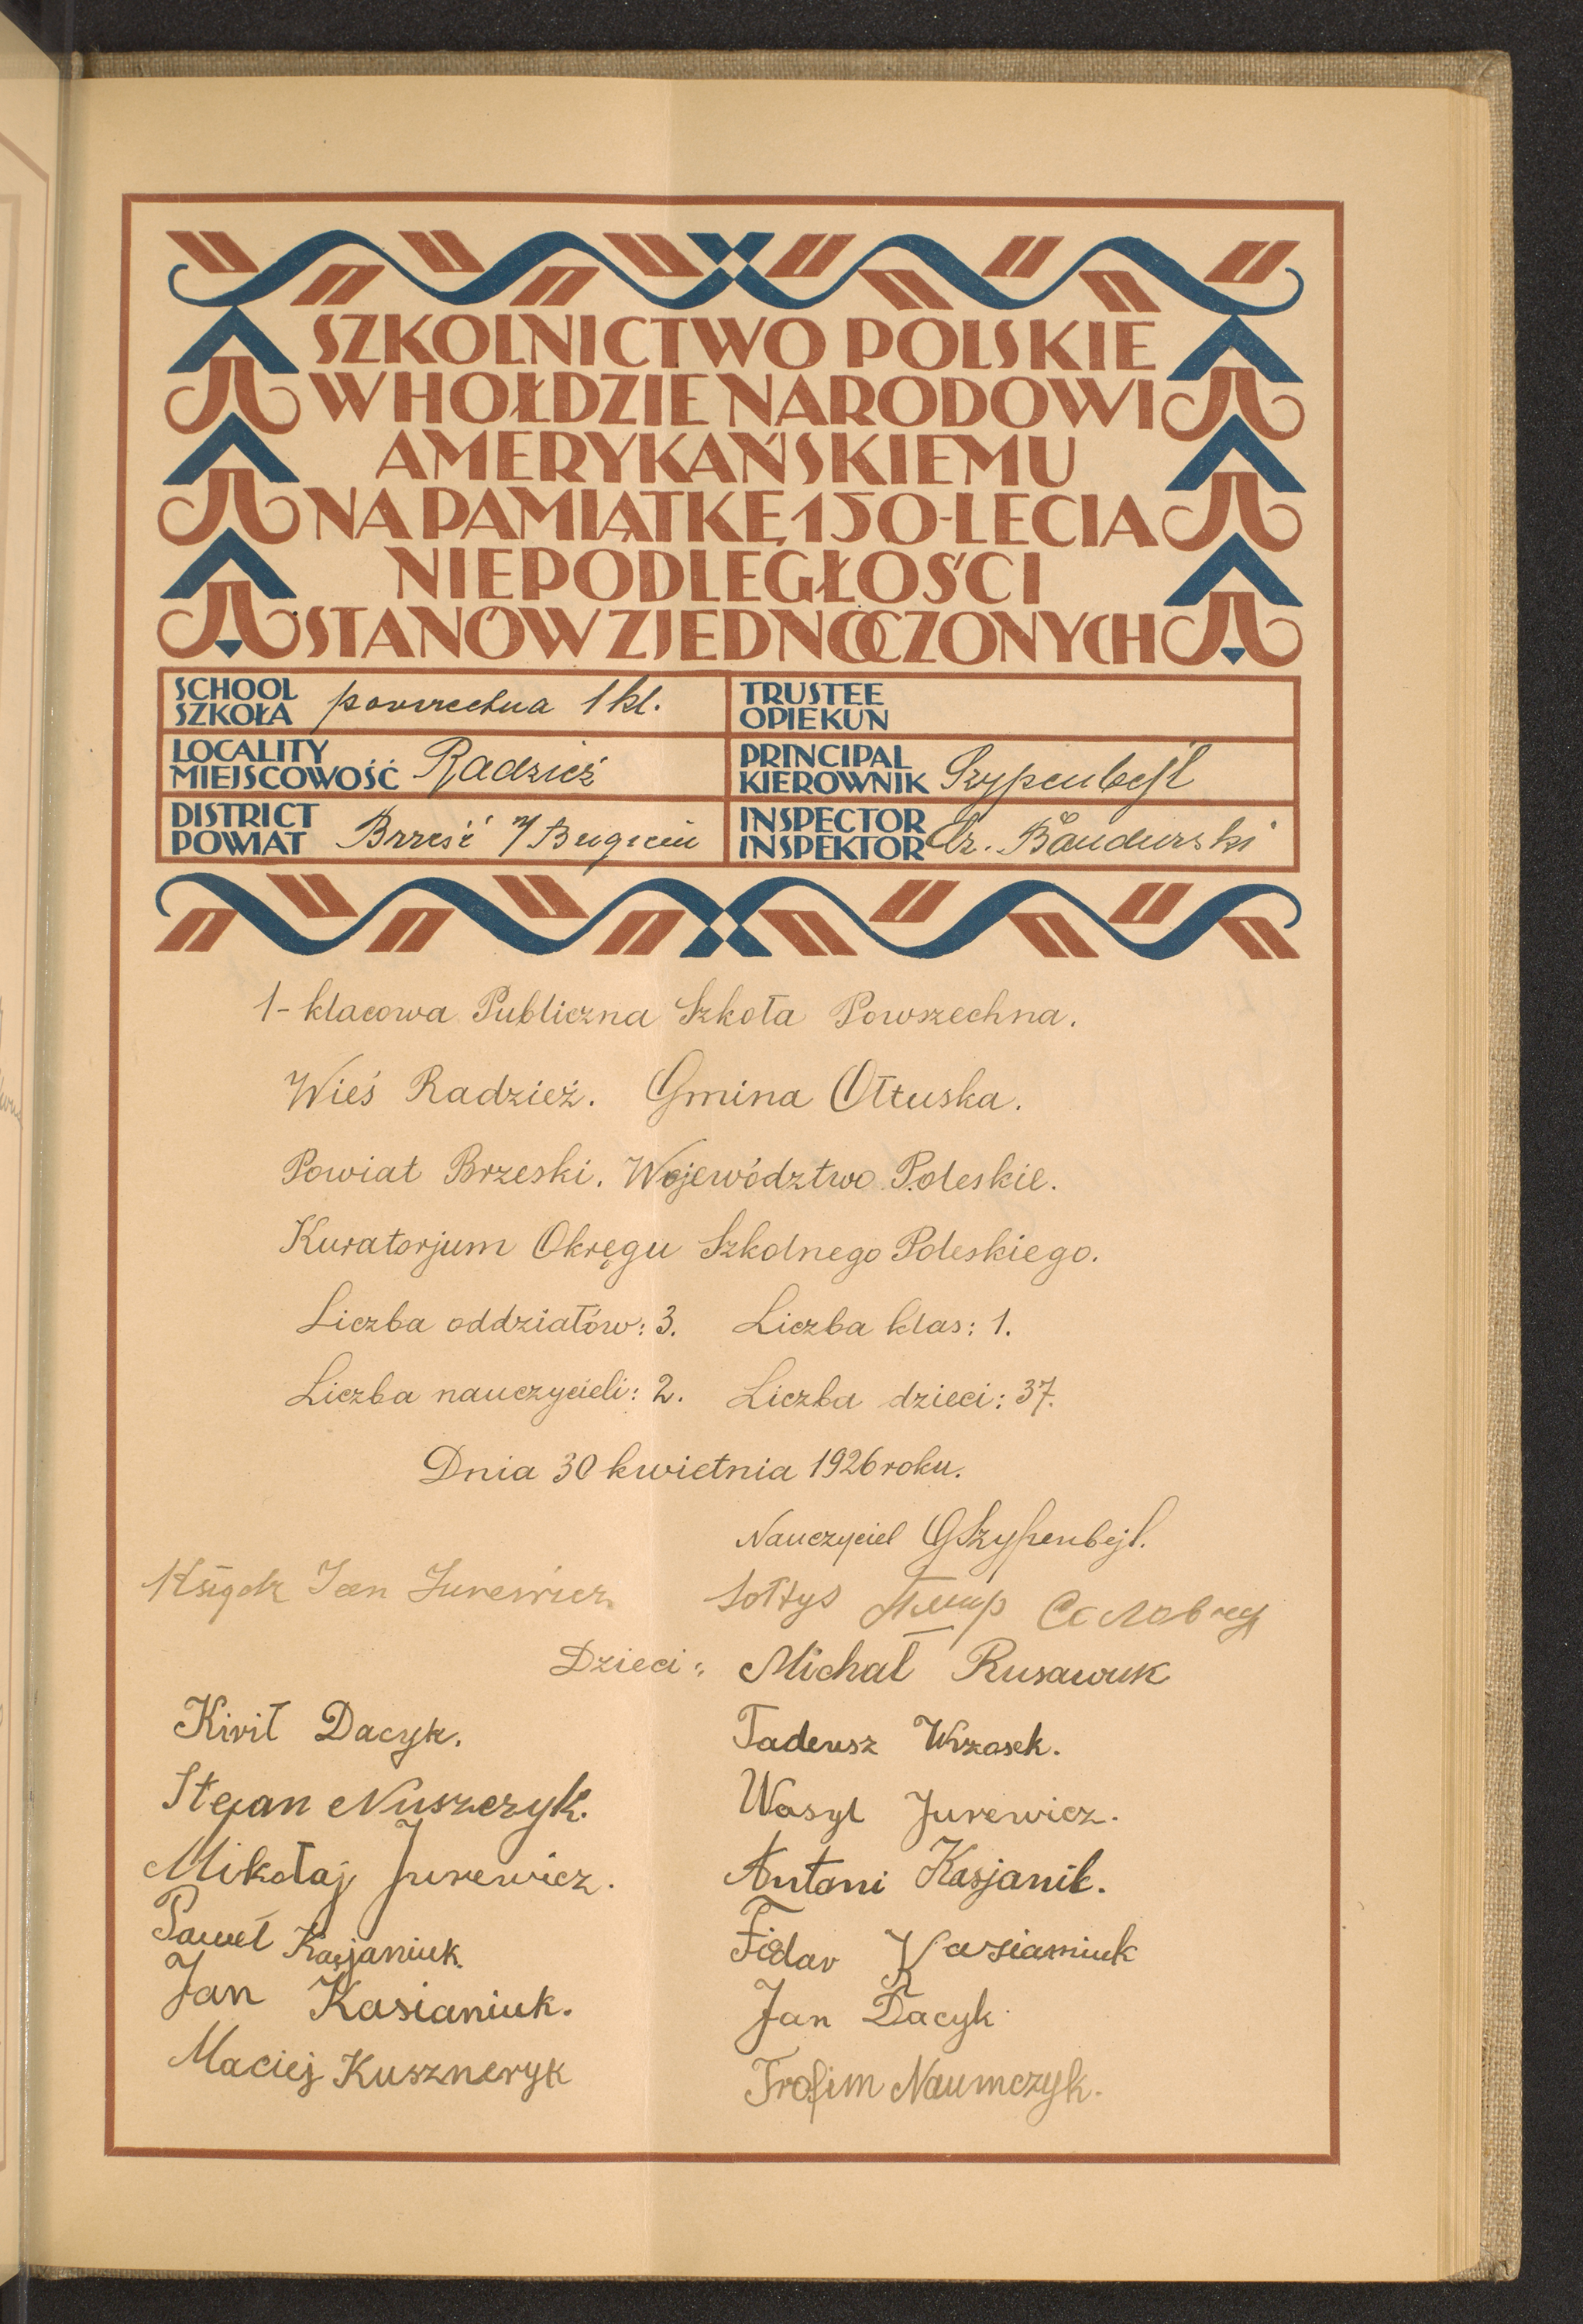 SZKOLNICTWO POLSKIE
W HOŁDZIE NARODOWI
AMERYKAŃSKIEMU
NA PAMIĄTKĘ 150-LECIA
NIEPODLEGŁOŚCI
STANÓW ZJEDNOCZONYCH
SCHOOL
SZKOŁA powszechna 1 kl.
TRUSTEE
OPIEKUN
LOCALITY
MIEJSCOWOŚĆ Radzież
PRINCIPAL
KIEROWNIK Szypenbejl
DISTRICT
POWIAT Brześć n/Bugiem
INSPECTOR
INSPEKTOR Cz. Bandurski
1-klasowa Publiczna Szkoła Powszechna.
Wieś Radzież. Gmina Ołtuska.
Powiat Brzeski. Województwo Poleskie.
Kuratorjum Okręgu Szkolnego Poleskiego.
Liczba oddziałów: 3. Liczba klas: 1.
Liczba nauczycieli: 2. Liczba dzieci: 37.
Dnia 30 kwietnia 1926 roku.
Nauczyciel GSzypenbejl.
Ksiądz Jan Jurewicz
Sołtys
Dzieci: Michał Rusawuk
Kirił Dacyk.
Tadeusz Wrzosek.
Stepan Nuszczyk.
Wasyl Jurewicz.
Mikołaj Jurewicz.
Antoni Kasjanik.
Paweł Kasjaniuk.
Fiedor Kasianiuk
Jan Kasianiuk.
Jan Dacyk
Maciej Kuszneryk
Trofim Naumczyk.